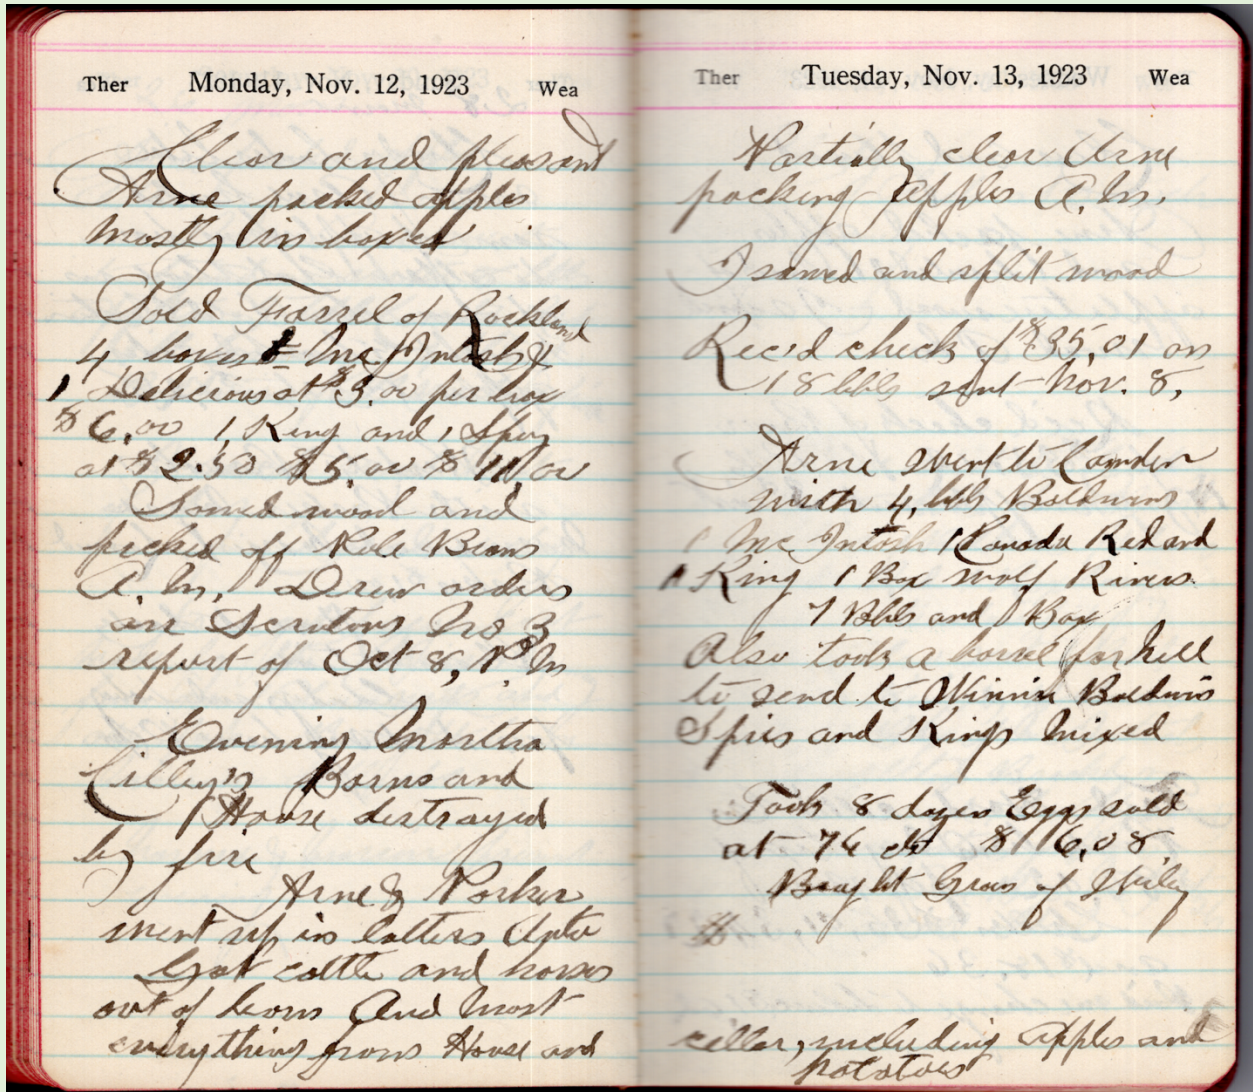 Ther Monday, Nov. 12, 1923 Wea
Clear and pleasant
Arne packed apples
mostly in boxes
Sold Farrel of Rockland
4 boxes 2 McIntosh &
1 Delicious at $3.00 per box
$6.00 1 King and 1 Spy
at $2.50 $5.00 $11.00
Sawed wood and
picked off Pole Beans
A.M. Drew orders
on Scrutons No 3
report of Oct 8, P.M
Evening Martha
Cilley's Barns and
House destroyed
by fire
Arne & Parker
went up in latters Auto
Got cattle and horses
out of barns And most
everything from House and
Ther Tuesday, Nov. 13, 1923 Wea
Partially clear Arne
packing apples A.M.
I sawed and split wood
Rec'd check of $35,01 on
18 bbls sent Nov. 8,
Arne went to Camden
with 4, bbls Baldwins
1 McIntosh 1 Canada Red and
1 King 1 Box Wolf Rivers
7 Bbls and Box
Also took a barrel for hill
to send to Winnie Baldwins
Spies and Kings Mixed
Took 8 dozen Eggs sold
at 76 cts $ 6,08
Bought Gram of Wiley
$
cellar, including apples and
potatoes